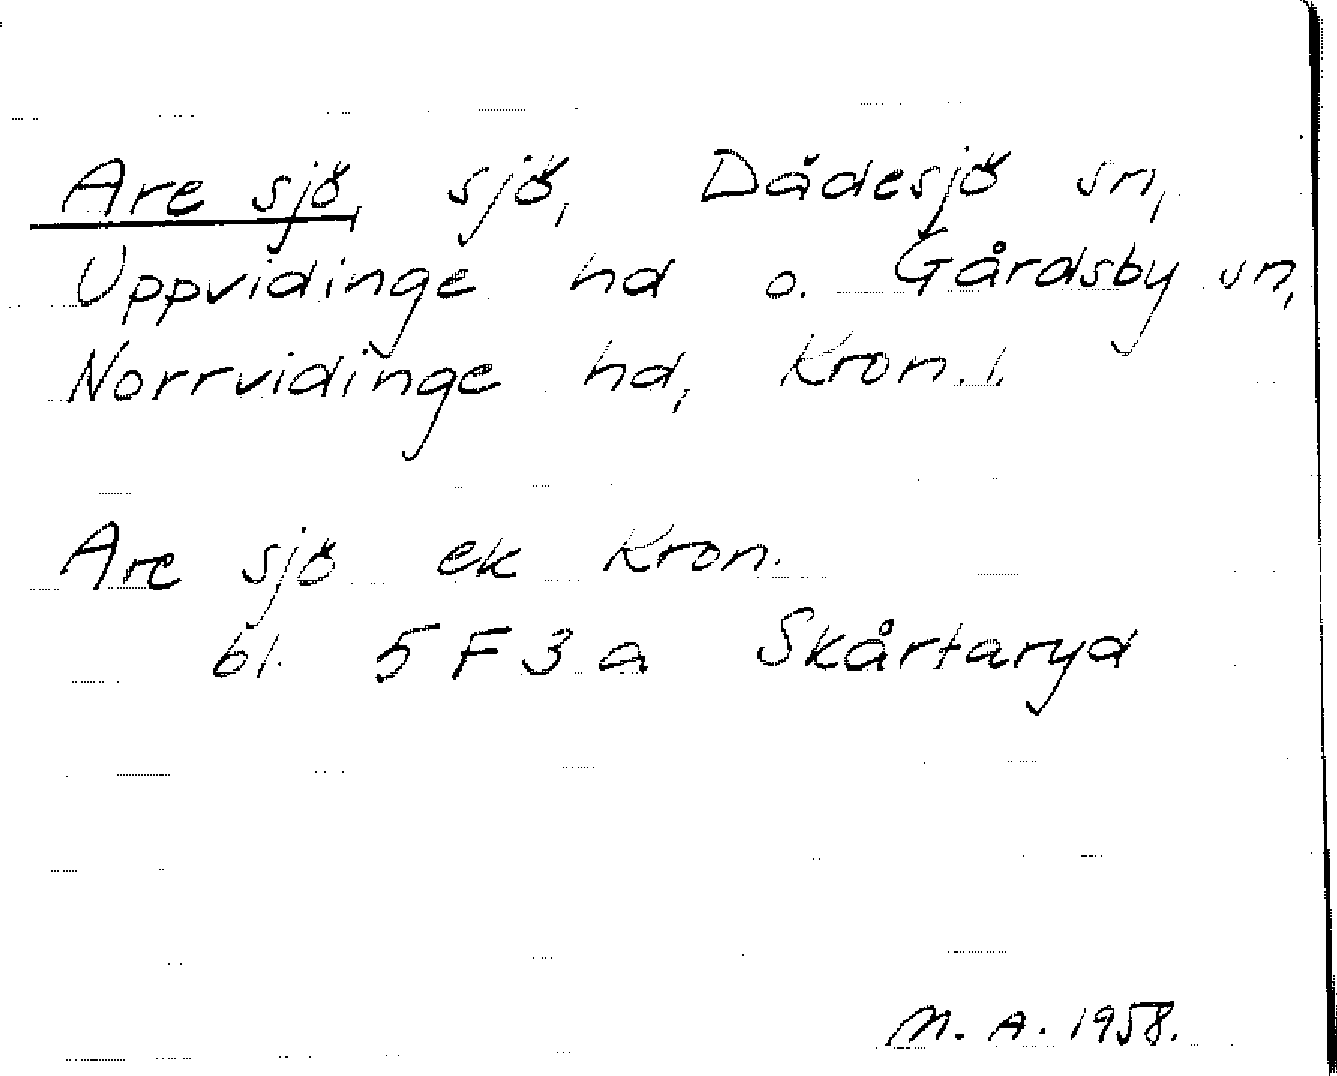 Are sjö, sjö, Dädesjö sn,
Uppvidinge hd o. Gårdsby sn,
Norrvidinge hd, Kron. l.
Are sjö ek Kron.
bl. 5 F 3 a Skårtaryd
M. A. 1958.